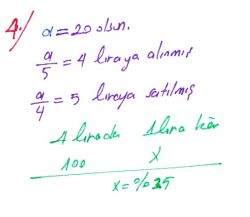 4./ a = 20 olsun.
a/5 = 4 liraya alınmış
a/4 = 5 liraya satılmış
4 lirada 1 lira kâr
100 x
x = %25